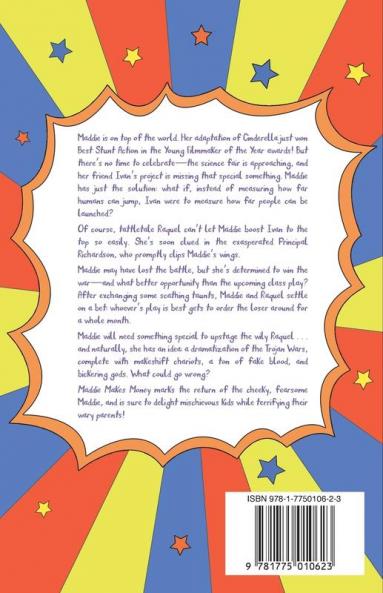 Maddie is on top of the world. Her adaptation of Cinderella just won
Best Stunt Action in the Young Filmmaker of the Year awards! But
there's no time to celebrate—the science fair is approaching, and
her friend Ivan's project is missing that special something. Maddie
has just the solution: what if, instead of measuring how far
humans can jump, Ivan were to measure how far people can be
launched?
Of course, tattletale Raquel can't let Maddie boost Ivan to the
top so easily. She's soon clued in the exasperated Principal
Richardson, who promptly clips Maddie's wings.
Maddie may have lost the battle, but she's determined to win the
war—and what better opportunity than the upcoming class play?
After exchanging some scathing taunts, Maddie and Raquel settle
on a bet: whoever's play is best gets to order the loser around for
a whole month.
Maddie will need something special to upstage the wily Raquel . . .
and naturally, she has an idea: a dramatization of the Trojan Wars,
complete with makeshift chariots, a ton of fake blood, and
bickering gods. What could go wrong?
Maddie Makes Money marks the return of the cheeky, fearsome
Maddie, and is sure to delight mischievous kids while terrifying their
wary parents!
ISBN 978-1-7750106-2-3
9 781775 010623